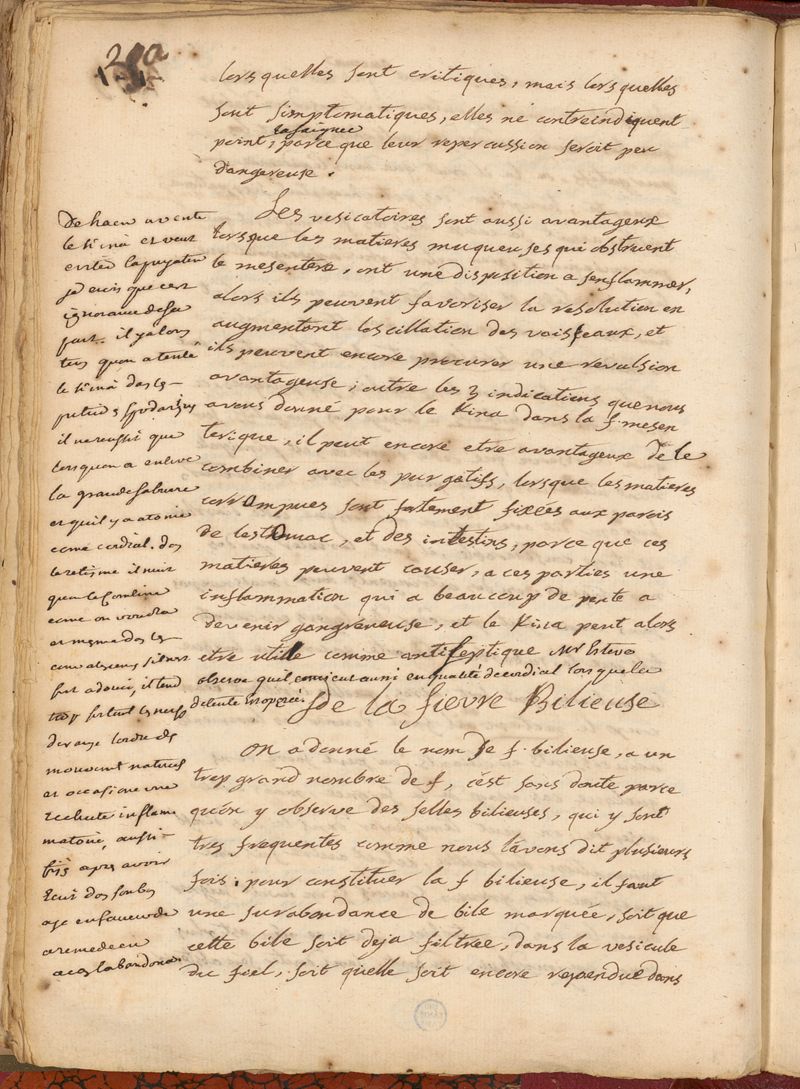 lorsquelles sont critiques, mais lorsquelles
sont simptomatiques, elles ne contreindiquent
la saignee
point, parce que leur repercussion seroit peu
dangereuse.
Les vesicatoires sont aussi avantageux
lorsque les matieres muqueuses qui obstruent
le mesentere, ont une disposition a senflammer,
alors ils peuvent favoriser la resolution en
augmentant loscillation des vaisseaux, et
ils peuvent encore procurer une revulsion
avantageuse; outre les 3 indications que nous
avons donné pour le Kina dans la f. mesen
terique, il peut encore etre avantageux de le
combiner avec les purgatifs, lorsque les matieres
corrompues sont fortement fixées aux parois
de lestomac, et des intestins, parce que ces
matieres peuvent causer, a ces parties une
inflammation qui a beaucoup de pente a
devenir gangreneuse, et le Kina peut alors
etre utille comme antiseptique Mr Esteve
observe quil convient aussi en qualité de cordial lorsque la
De la fievre Bilieuse
On a donné le nom de f. bilieuse, a un
trop grand nombre de f, c'ést sans doute parce
qu'on y observe des selles bilieuses, qui y sont
tres frequentes comme nous l'avons dit plusieurs
fois. pour constituer la f bilieuse, il faut
une surabondance de bile marquée, soit que
cette bile soit deja filtrée, dans la vesicule
du fiel, soit quelle soit encore rependue dans
De haen a vente
le Kina et veut
eviter la purgation
je crois que cest
ignorance de sa
part. il y a lons
tems quon a tenté
le Kina
il ne reussi que
lors quon a enlevé
la grande saburre
et quil y a atonie
come cordial. dos
il nuit
come on voudra
il tend
trop fortent les nerfs
derange lordre des
mouvent naturels
et occasione une
rechute inflam
matoire, aussi
tos apres avoir